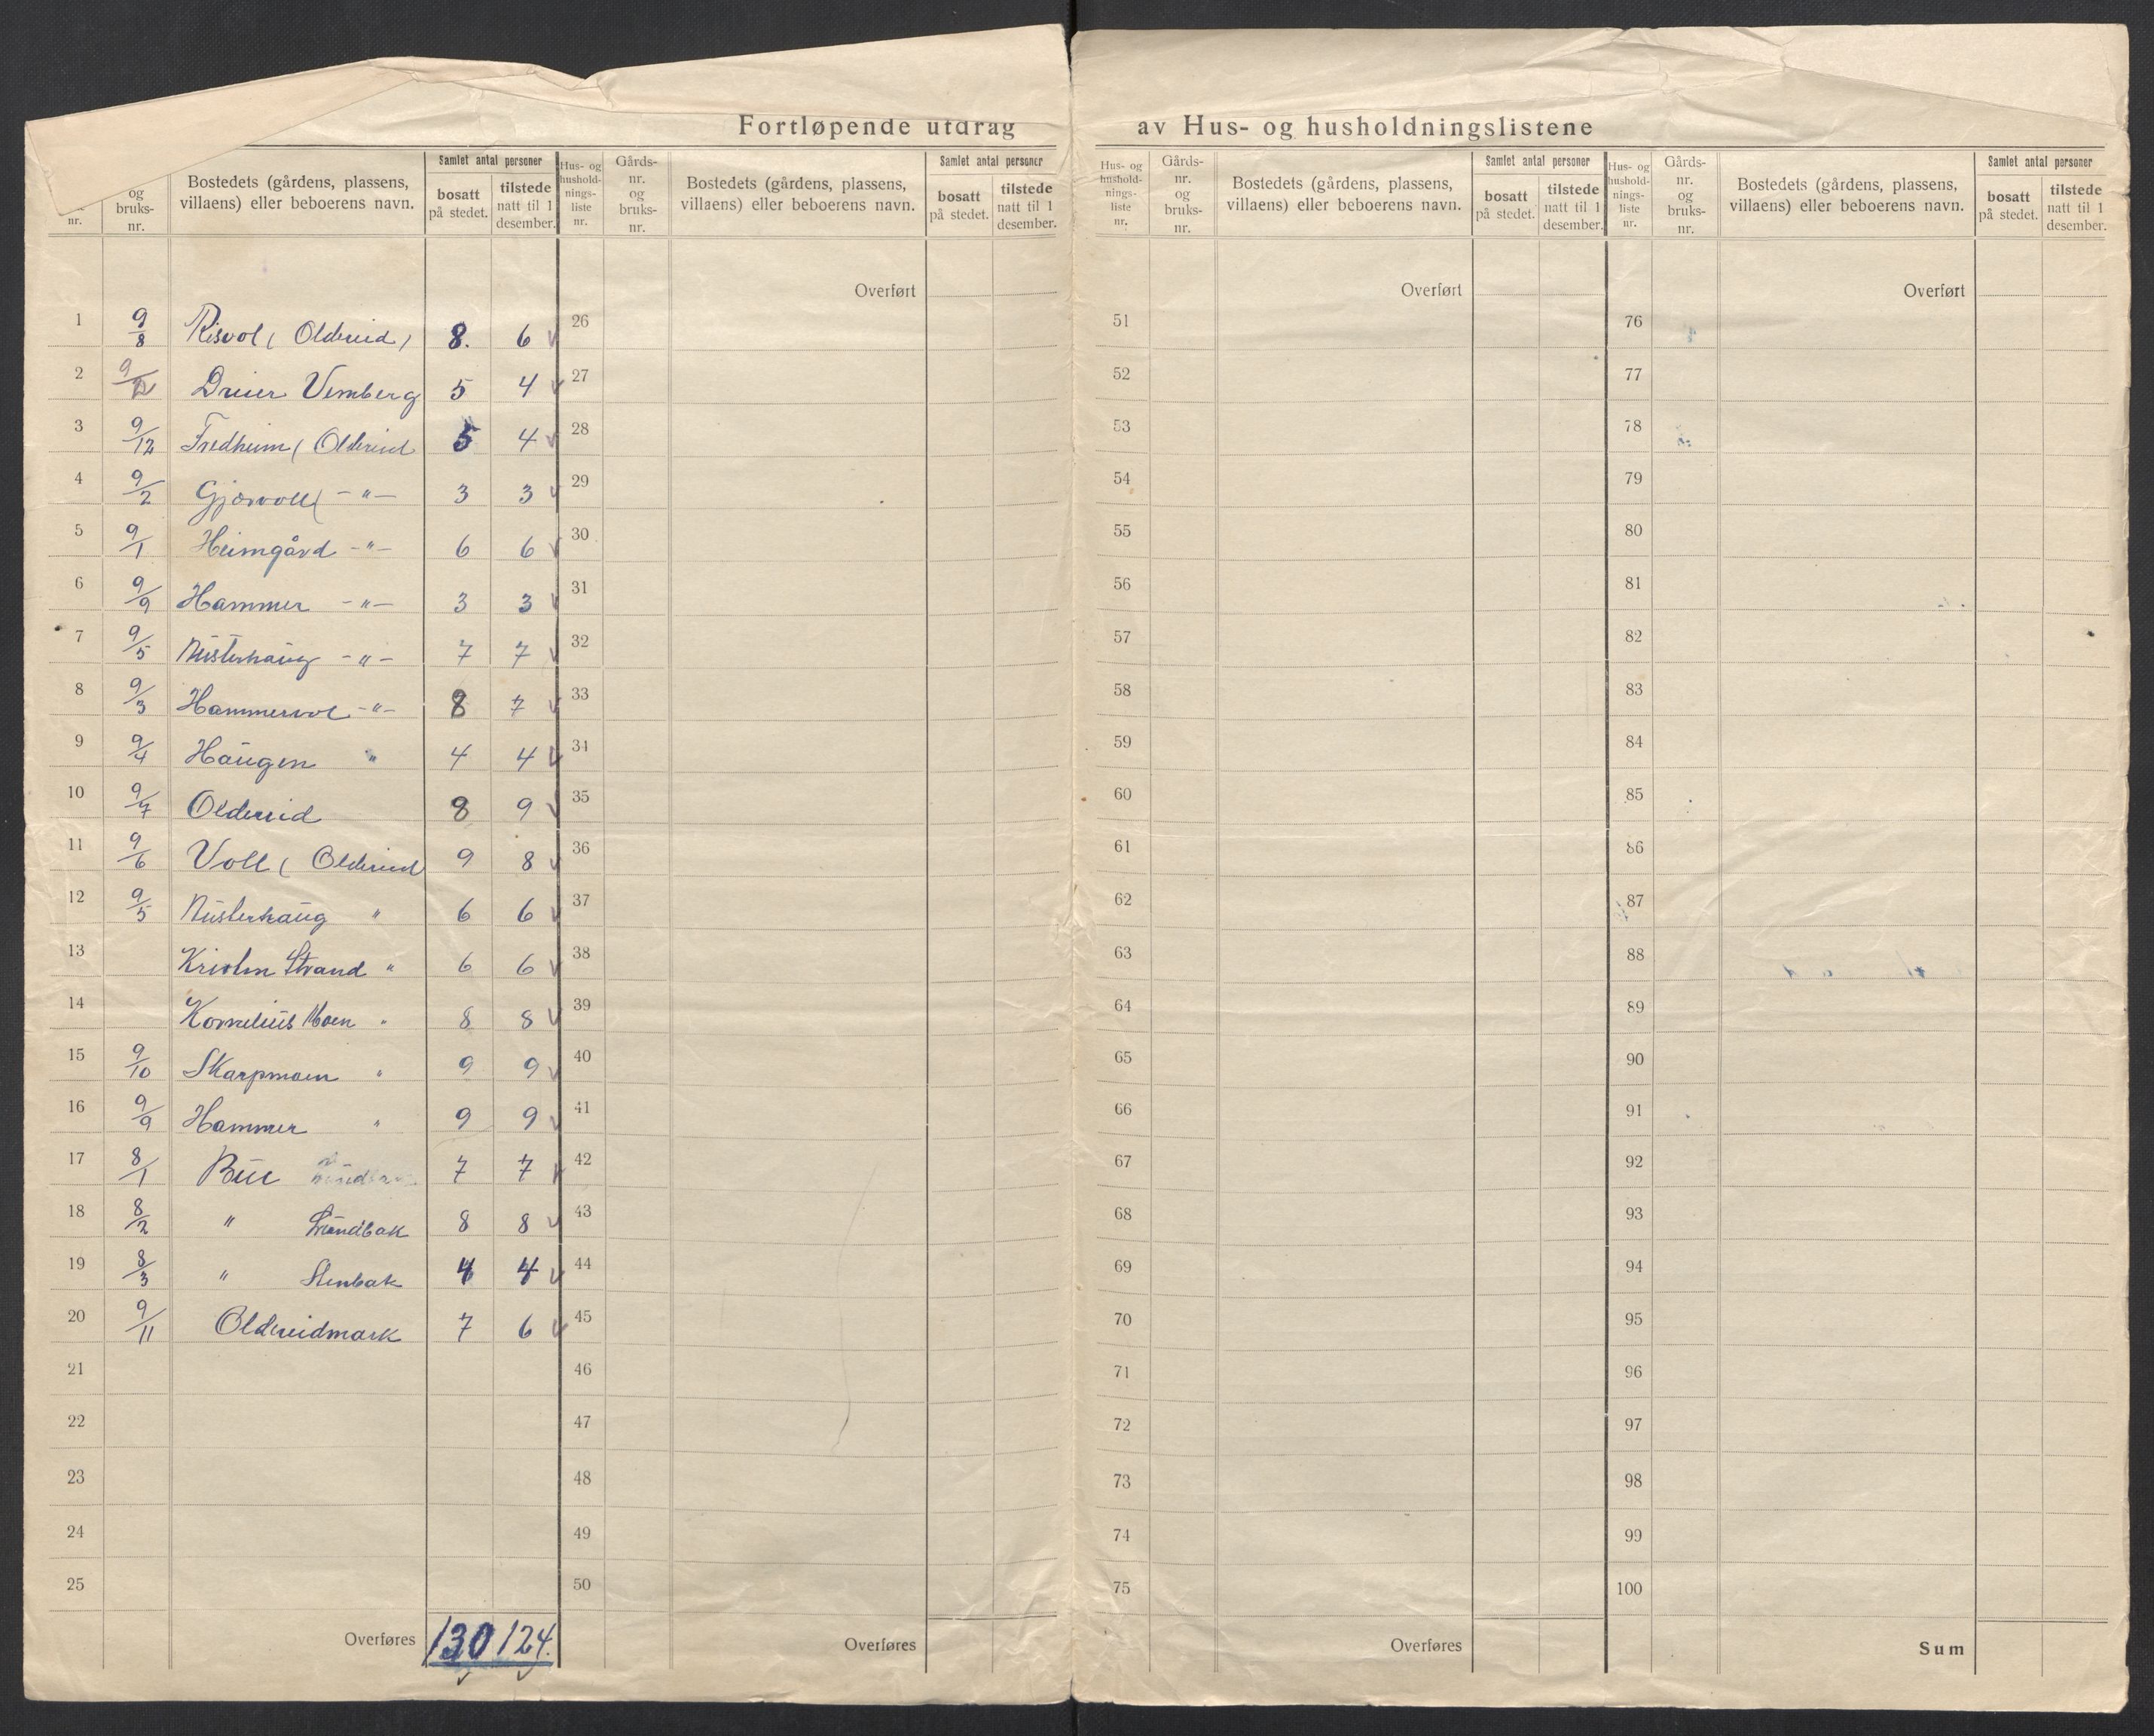 Fortløpende utdrag av Hus- og husholdningslistene
nr. og bruks- nr. Bostedets (gårdens, plassens, villaens) eller beboerens navn. Samlet antal personer bosatt på stedet. tilstede natt til 1 desember.
Hus- og hushold- nings- liste nr. Gårds- nr. og bruks- nr. Bostedets (gårdens, plassens, villaens) eller beboerens navn. Samlet antal personer bosatt på stedet. tilstede natt til 1 desember.
Hus- og hushold- nings- liste nr. Gårds- nr. og bruks- nr. Bostedets (gårdens, plassens, villaens) eller beboerens navn. Samlet antal personer bosatt på stedet. tilstede natt til 1 desember.
Hus- og hushold- nings- liste nr. Gårds- nr. og bruks- nr. Bostedets (gårdens, plassens, villaens) eller beboerens navn. Samlet antal personer bosatt på stedet. tilstede natt til 1 desember.
Overført Overført Overført
1 9/8 Risvol ( Oldereid ) 8. 6 26 51 76
2 Vemberg 5 4 27 52 77
3 9/12 Fredheim ( Oldereid 5 4 28 53 78
4 9/2 Gjørvoll ( -"- 3 3 29 54 79
5 9/1 Heimgård -"- 6 6 30 55 80
6 9/9 Hammer -"- 3 3 31 56 81
7 9/5 Nüsterhaüg -"- 7 7 32 57 82
8 9/3 Hammervol -"- 8 7 33 58 83
9 9/4 Haügen " 4 4 34 59 84
10 9/7 Oldereid 8 9 35 60 85
11 9/6 Voll ( Oldereid 9 8 36 61 86
12 9/5 Nüsterhaüg " 6 6 37 62 87
13 Strand " 6 6 38 63 88
14 Korneliüs Moen " 8 8 39 64 89
15 9/10 Skarpmoen " 9 9 40 65 90
16 9/9 Hammer " 9 9 41 66 91
17 8/1 7 7 42 67 92
18 8/2 " 8 8 43 68 93
19 8/3 " Stenbak 4 4 44 69 94
20 9/11 Oldereidmark 7 6 45 70 95
21 46 71 96
22 47 72 97
23 48 73 98
24 49 74 99
25 50 75 100
Overføres 130 124. Overføres Overføres Sum